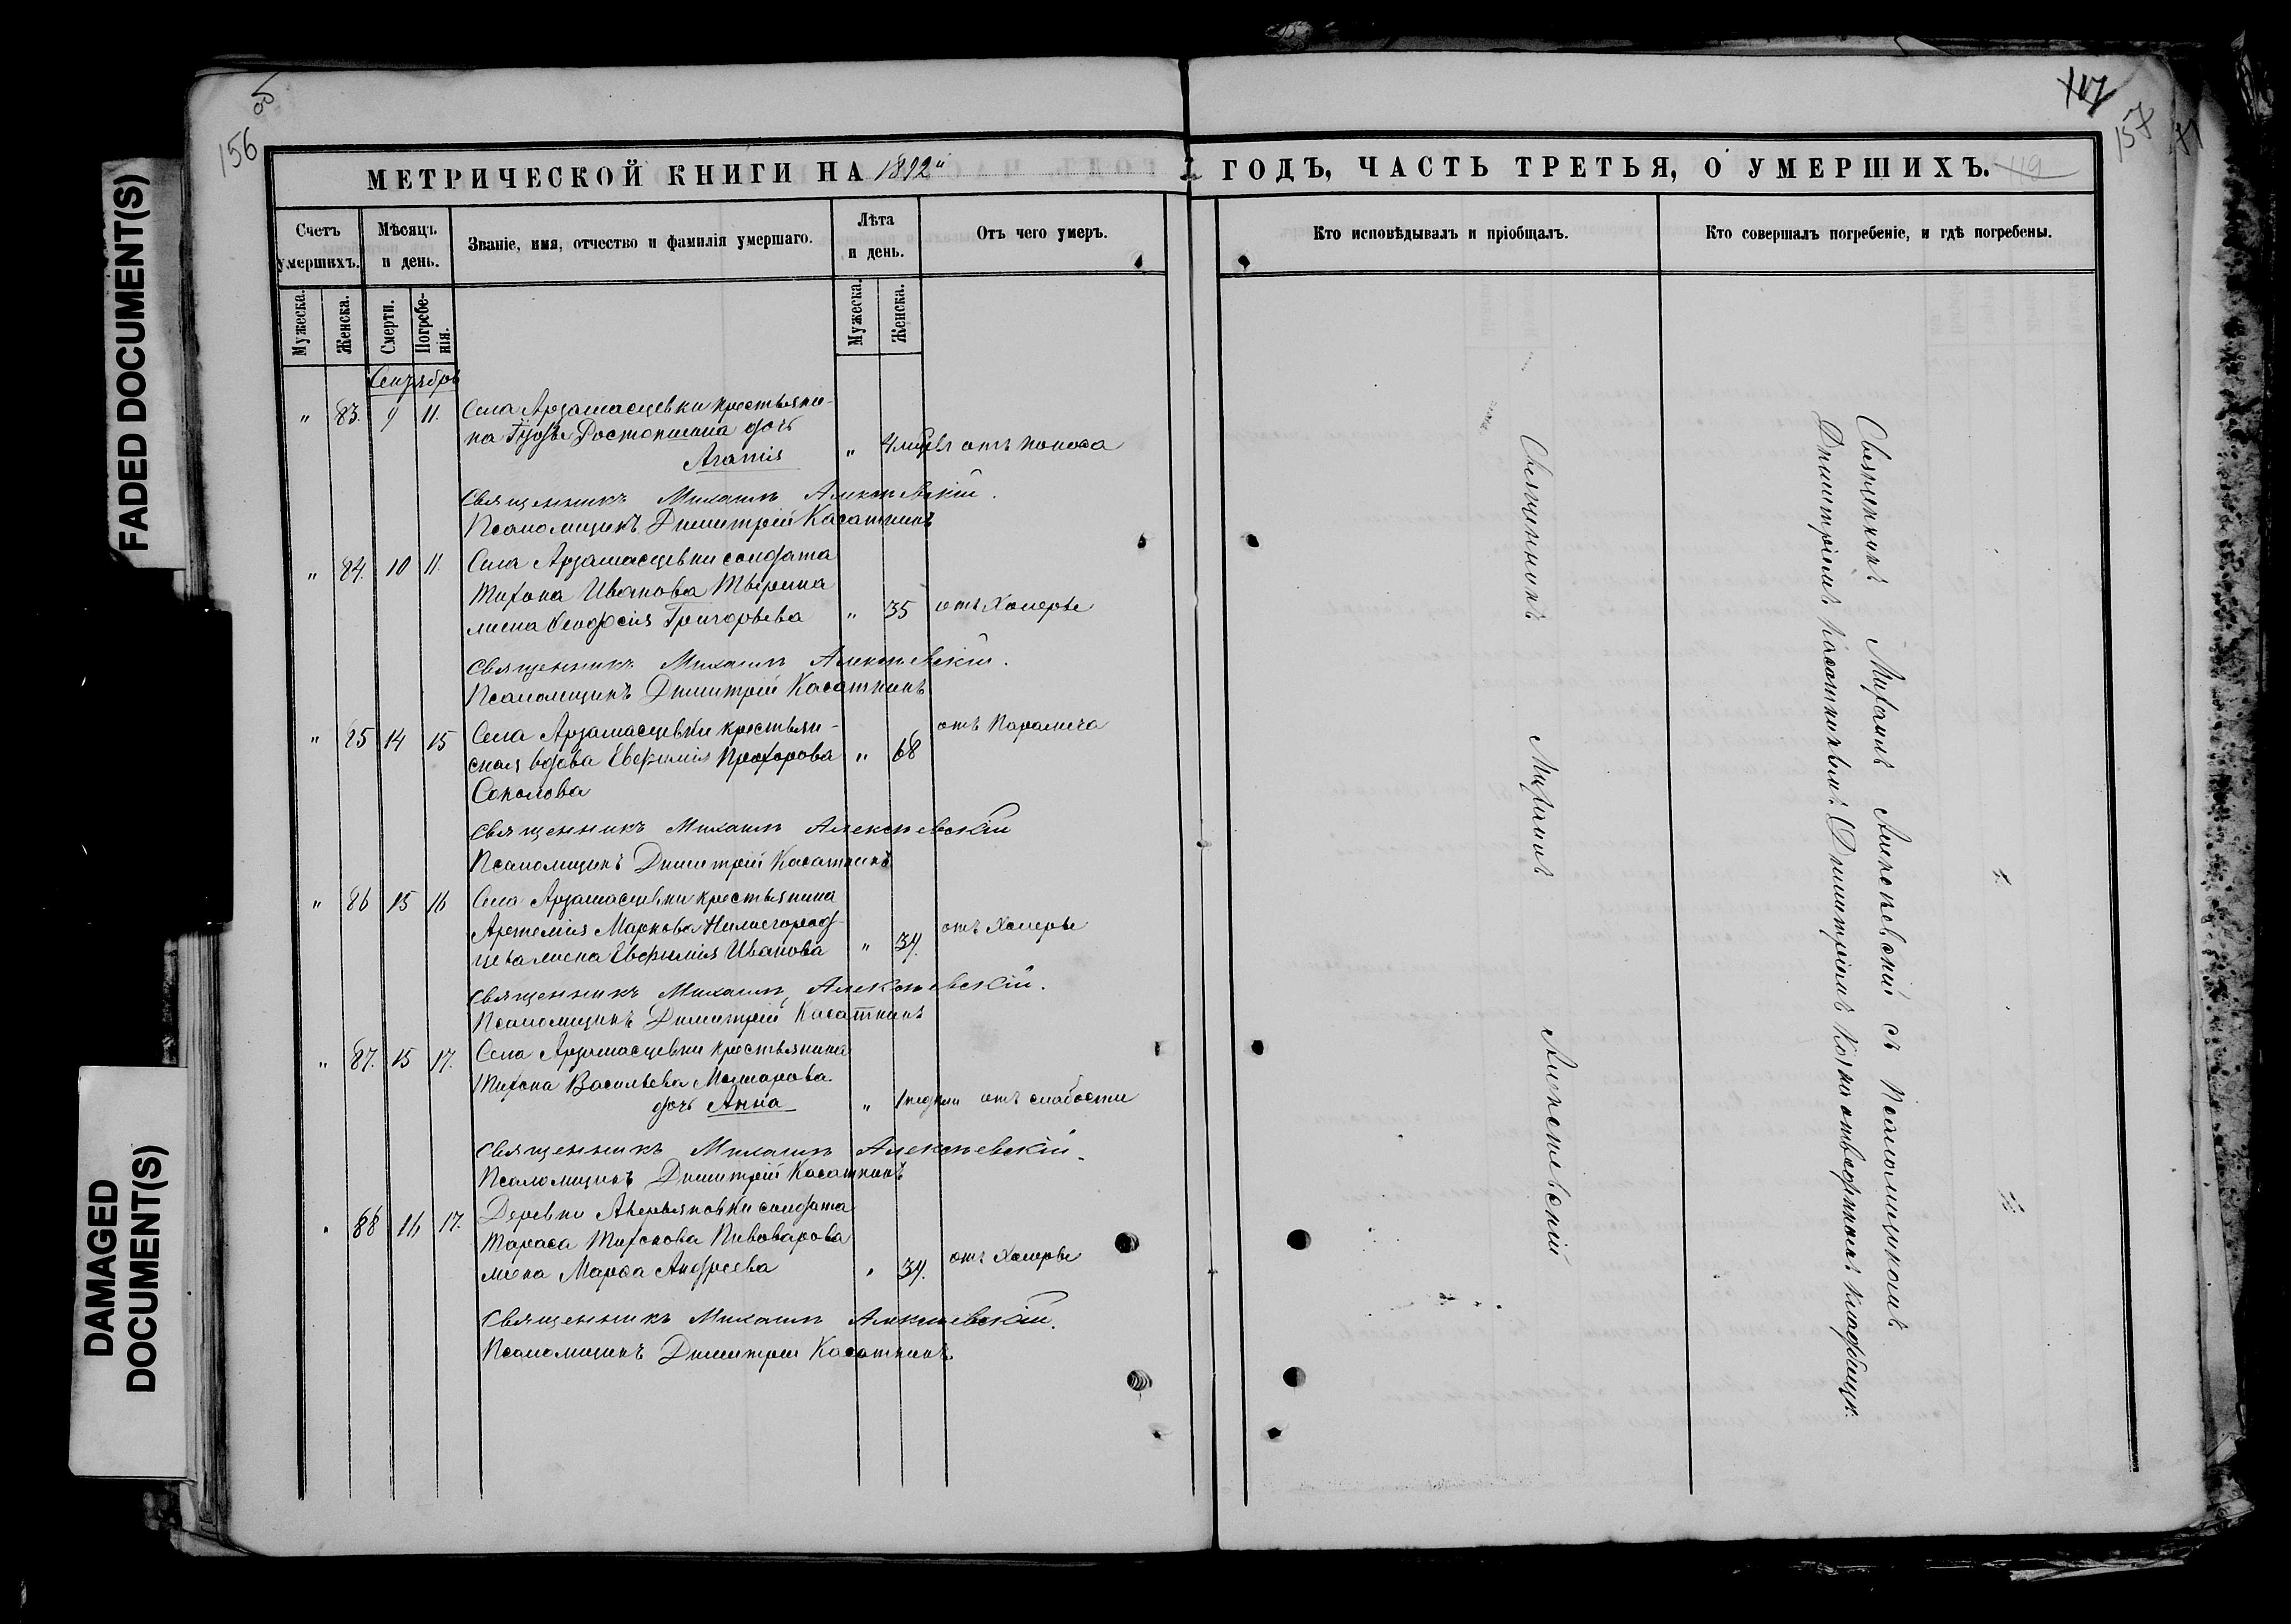 FADED DOCUMENT(S)
DAMAGED
DOCUMENT(S)
156
об
МЕТРИЧЕСКОЙ КНИГИ НА 1892"
Счетъ умершихъ.
Мѣсяцъ и день.
Званіе, имя, отчество и фамилія умершаго.
Лѣта и день.
Отъ чего умеръ.
Мужеска.
Женска.
Смерти.
Погребе-
нія.
Мужеска.
Женска.
Сентябрь
" 83. 9 11. Села Арзамасцевки крестьяни-
на Растопшина дочь
Агаѳія " 4 мѣся отъ поноса
Священникъ Михаилъ Алексѣевскій.
Псаломщикъ Димитрій Касаткинъ
" 84. 10 11. Села Арзамасцевки солдата
Тихона Иванова Тверина
жена Ѳеодосія Григорьева " 35 отъ Холеры
Священникъ Михаилъ Алексѣевскій.
Псаломщикъ Димитрій Касаткинъ
" 85 14 15 Села Арзамасцевки крестьян-
ская вдова Евфимія Прохорова " 68 отъ Паралича
Соколова
Священникъ Михаилъ Алексѣевскій
Псаломщикъ Димитрій Касаткинъ
" 86 15 16 Села Арзамасцевки крестьянина
Артемія Маркова Нижегород-
цева жена Евфимія Иванова " 34. отъ Холеры
Священникъ Михаилъ Алексѣевскій.
Псаломщикъ Димитрій Касаткинъ
" 87. 15 17. Села Арзамасцевки крестьянина
Тихона Васильева
дочь Анна " 1 недѣли отъ слабости
Священникъ Михаилъ Алексѣевскій.
Псаломщикъ Димитрій Касаткинъ
" 88 16 17. Деревни Аверьяновки солдата
Тараса Тихонова Пивоварова
жена Марѳа Андреева " 34. отъ Холеры
Священникъ Михаилъ Алексѣевскій.
Псаломщикъ Димитрій Касаткинъ.
117
157
71
ГОДЪ, ЧАСТЬ ТРЕТЬЯ, О УМЕРШИХЪ.
119
Кто исповѣдывалъ и пріобщалъ.
Кто совершалъ погребеніе, и гдѣ погребены.
Священникъ Михаилъ Алексѣевскій
Священникъ Михаилъ Алексѣевскій съ Псаломщикомъ
Димитріемъ Касаткинымъ на отведенномъ кладбищѣ.